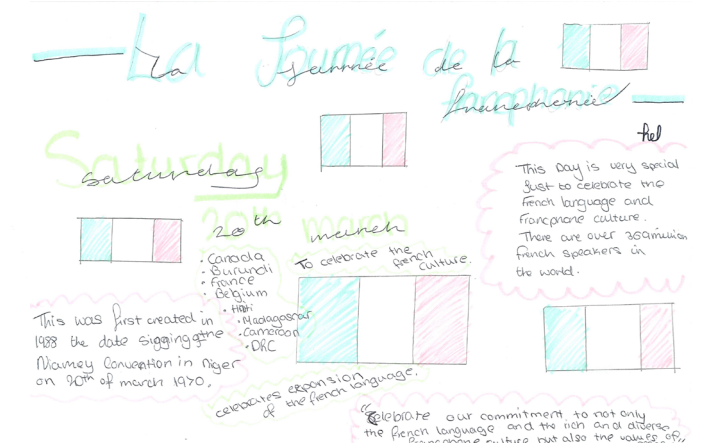 La Journée de la
francphonie
hel
Saturday
20th march
This Day is very special
just to celebrate the
french language and
Francphone culture.
There are over 369million
french speakers in
the world.
• Canada
• Burundi
• France
• Belgium
• Haiti
• Madagascar
• Cameroon
• DRC
To celebrate the
french culture.
This was first created in
1988 the date sigging the
Niamey Convention in Niger
on 20th of march 1970.
celebrates expansion
of the french language.
"Celebrate our commitment to not only
the french language and the rich and diverse
francophone culture but also the values of"